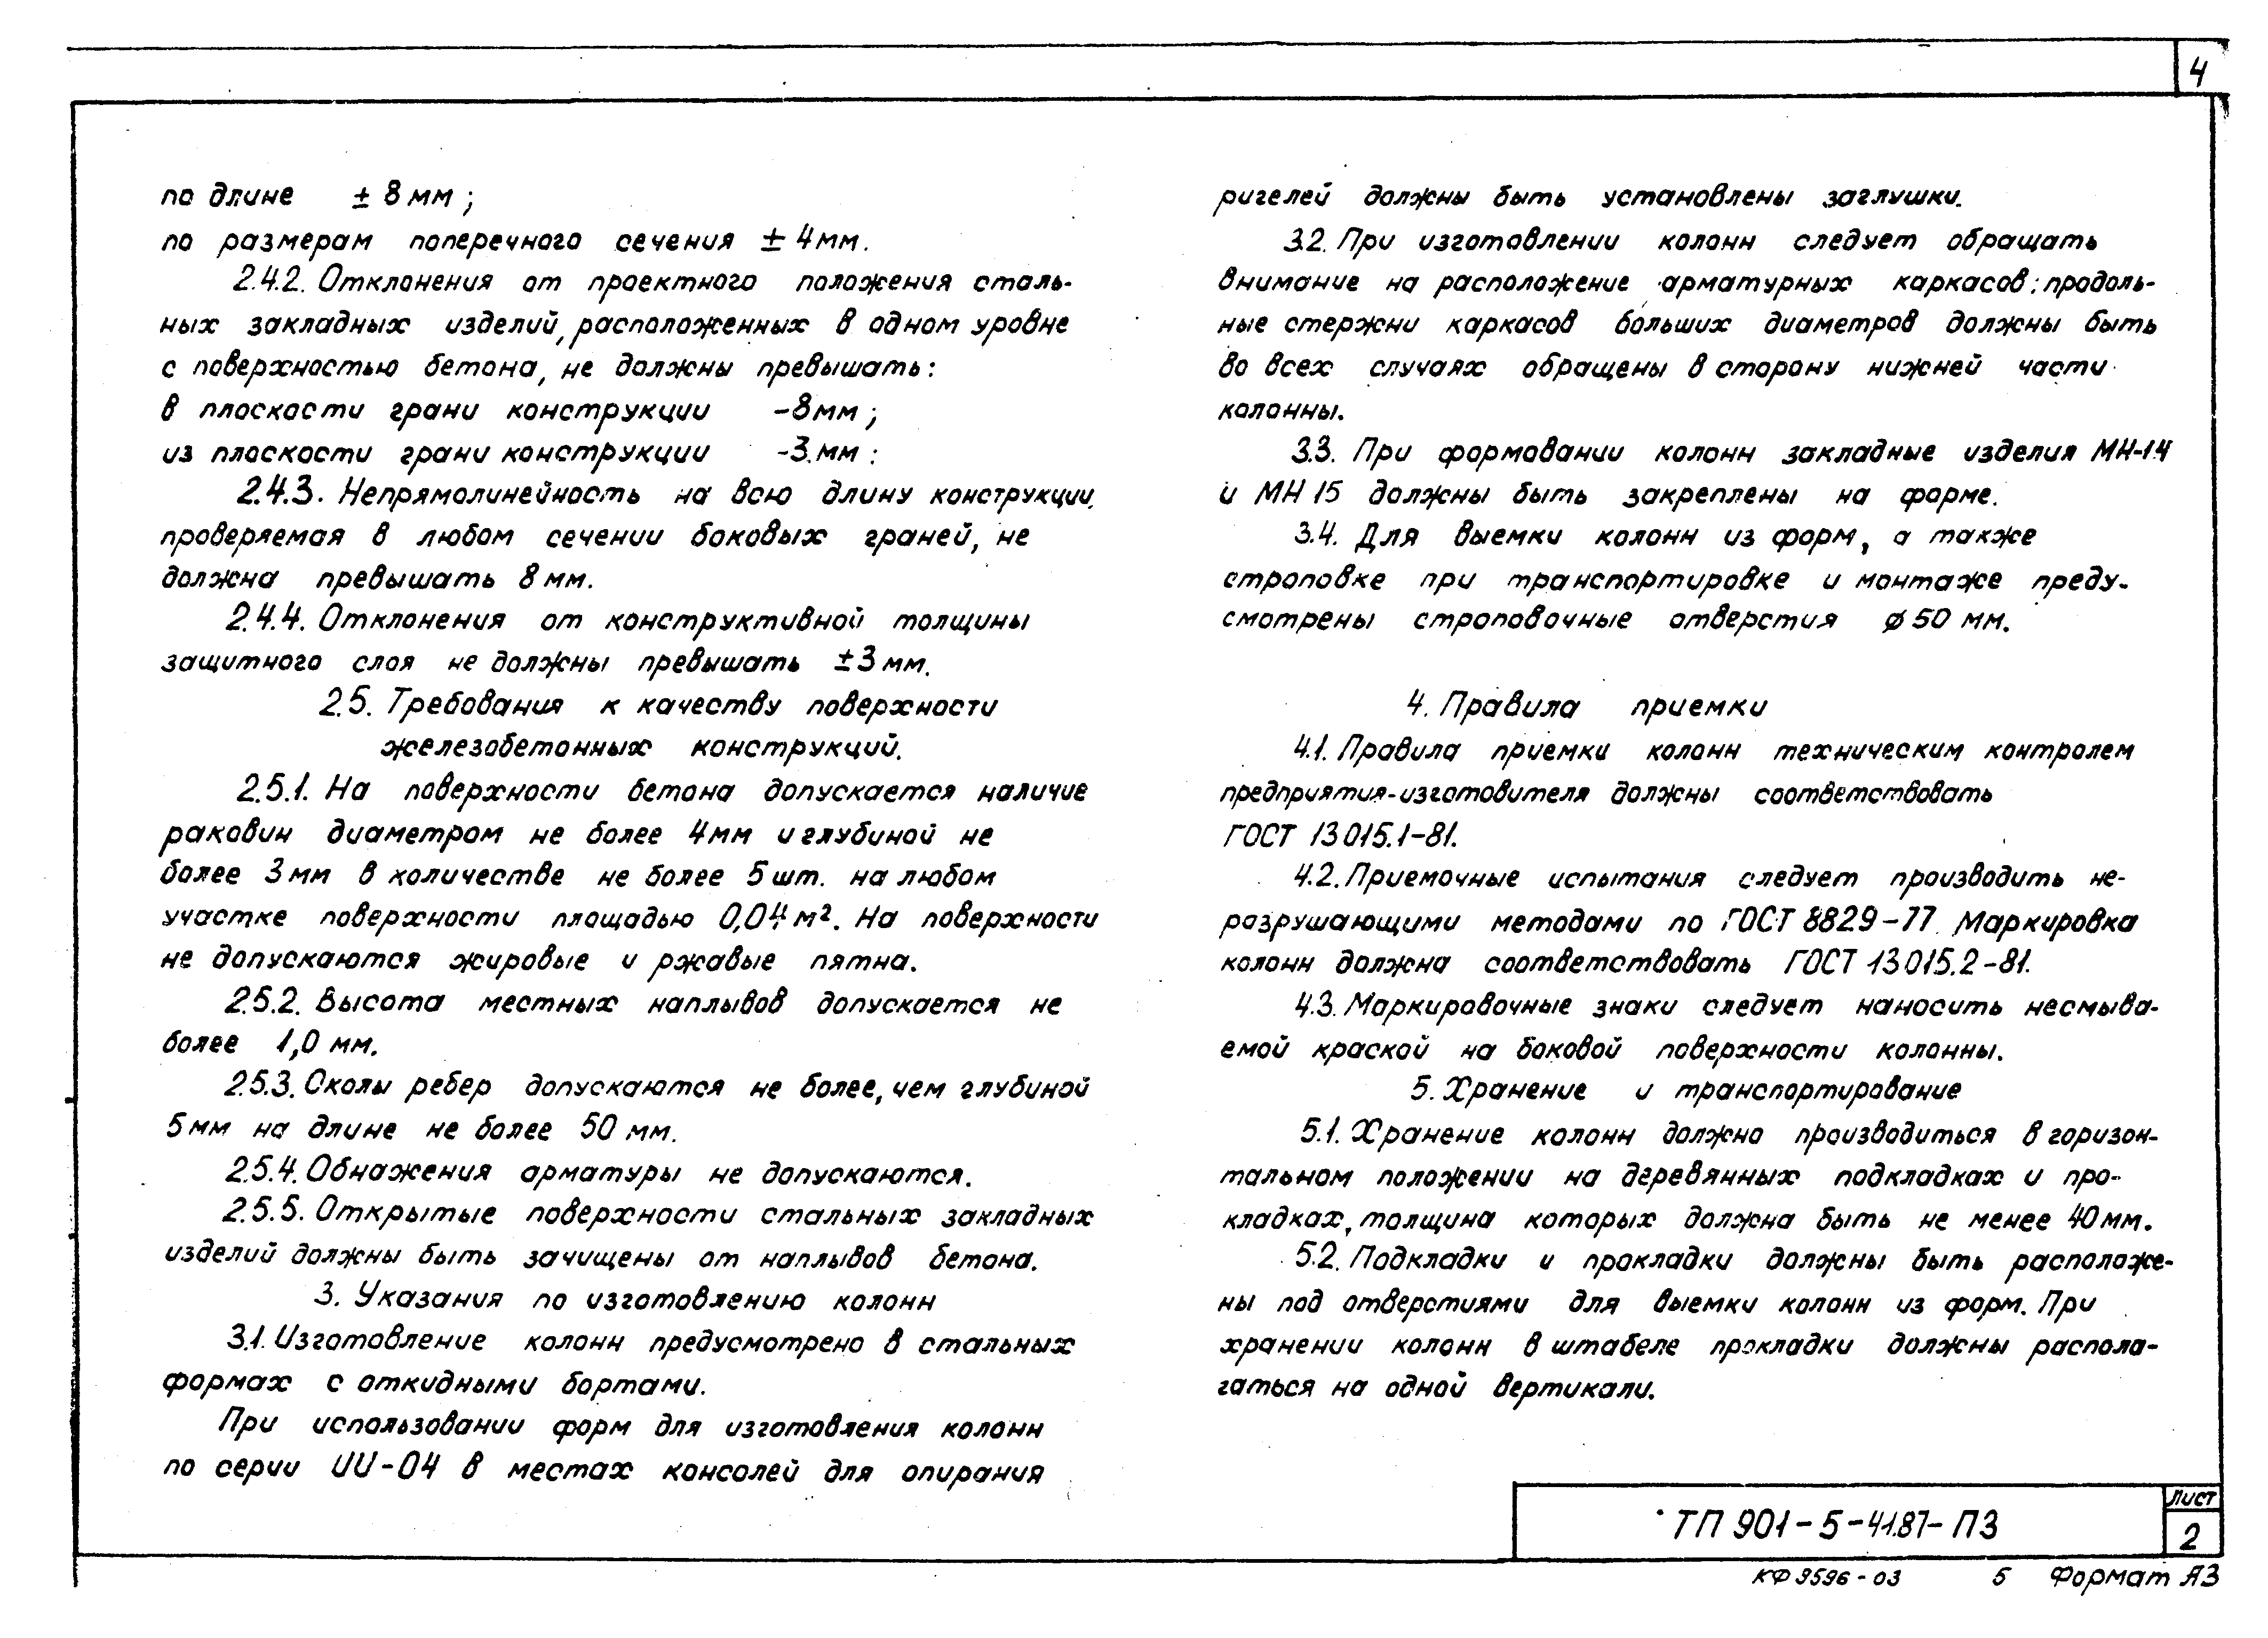 4
по длине ± 8 мм;
по размерам поперечного сечения ± 4 мм.
2.4.2. Отклонения от проектного положения сталь-
ных закладных изделий, расположенных в одном уровне
с поверхностью бетона, не должны превышать:
в плоскости грани конструкции -8 мм;
из плоскости грани конструкции -3 мм:
2.4.3. Непрямолинейность на всю длину конструкции,
проверяемая в любом сечении боковых граней, не
должна превышать 8 мм.
2.4.4. Отклонения от конструктивной толщины
защитного слоя не должны превышать ±3 мм.
2.5. Требования к качеству поверхности
железобетонных конструкций.
2.5.1. На поверхности бетона допускается наличие
раковин диаметром не более 4 мм и глубиной не
более 3 мм в количестве не более 5 шт. на любом
участке поверхности площадью 0,04 м². На поверхности
не допускаются жировые и ржавые пятна.
2.5.2. Высота местных наплывов допускается не
более 1,0 мм.
2.5.3. Околы ребер допускаются не более, чем глубиной
5 мм на длине не более 50 мм.
2.5.4. Обнажения арматуры не допускаются.
2.5.5. Открытые поверхности стальных закладных
изделий должны быть зачищены от наплывов бетона.
3. Указания по изготовлению колонн
3.1. Изготовление колонн предусмотрено в стальных
формах с откидными бортами.
При использовании форм для изготовления колонн
по серии ИИ-04 в местах консолей для опирания
ригелей должны быть установлены заглушки.
3.2. При изготовлении колонн следует обращать
внимание на расположение арматурных каркасов: продоль-
ные стержни каркасов больших диаметров должны быть
во всех случаях обращены в сторону нижней части
колонны.
3.3. При формовании колонн закладные изделия МН-14
и МН 15 должны быть закреплены на форме.
3.4. Для выемки колонн из форм, а также
строповке при транспортировке и монтаже преду-
смотрены строповочные отверстия ø 50 мм.
4. Правила приемки
4.1. Правила приемки колонн техническим контролем
предприятия-изготовителя должны соответствовать
ГОСТ 13015.1-81.
4.2. Приемочные испытания следует производить не-
разрушающими методами по ГОСТ 8829-77. Маркировка
колонн должна соответствовать ГОСТ 13015.2-81.
4.3. Маркировочные знаки следует наносить несмыва-
емой краской на боковой поверхности колонны.
5. Хранение и транспортирование
5.1. Хранение колонн должно производиться в горизон-
тальном положении на деревянных подкладках и про-
кладках, толщина которых должна быть не менее 40 мм.
5.2. Подкладки и прокладки должны быть расположе-
ны под отверстиями для выемки колонн из форм. При
хранении колонн в штабеле прокладки должны распола-
гаться на одной вертикали.
ТП 901-5-41.87-ПЗ
Лист
2
КФ 9596-03 5 Формат А3